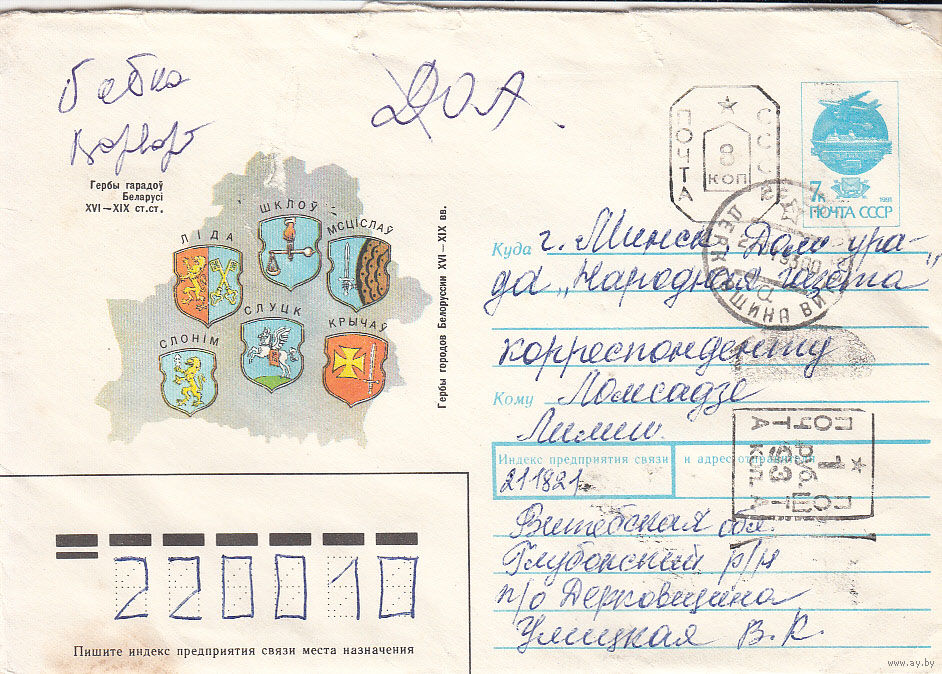 бабка
Гербы гарадоў
Беларусі
XVI–XIX ст.ст.
ЛІДА
ШКЛОЎ
МСЦІСЛАЎ
СЛОНІМ
СЛУЦК
КРЫЧАЎ
Гербы городов Белоруссии XVI–XIX вв.
ПОЧТА
СССР
8
КОП
7к
1991
ПОЧТА СССР
Куда г. Минск Дом ура-
да „Народная газета"
корреспонденту
Кому Ломсадзе
Лилии.
ПОЧТА
1 руб. 53 коп.
Индекс предприятия связи и адрес отправителя
211821
Витебская обл.
Глубокский р/н
п/о Дерковщина
Улицкая В. К.
220010
Пишите индекс предприятия связи места назначения
www.ay.by